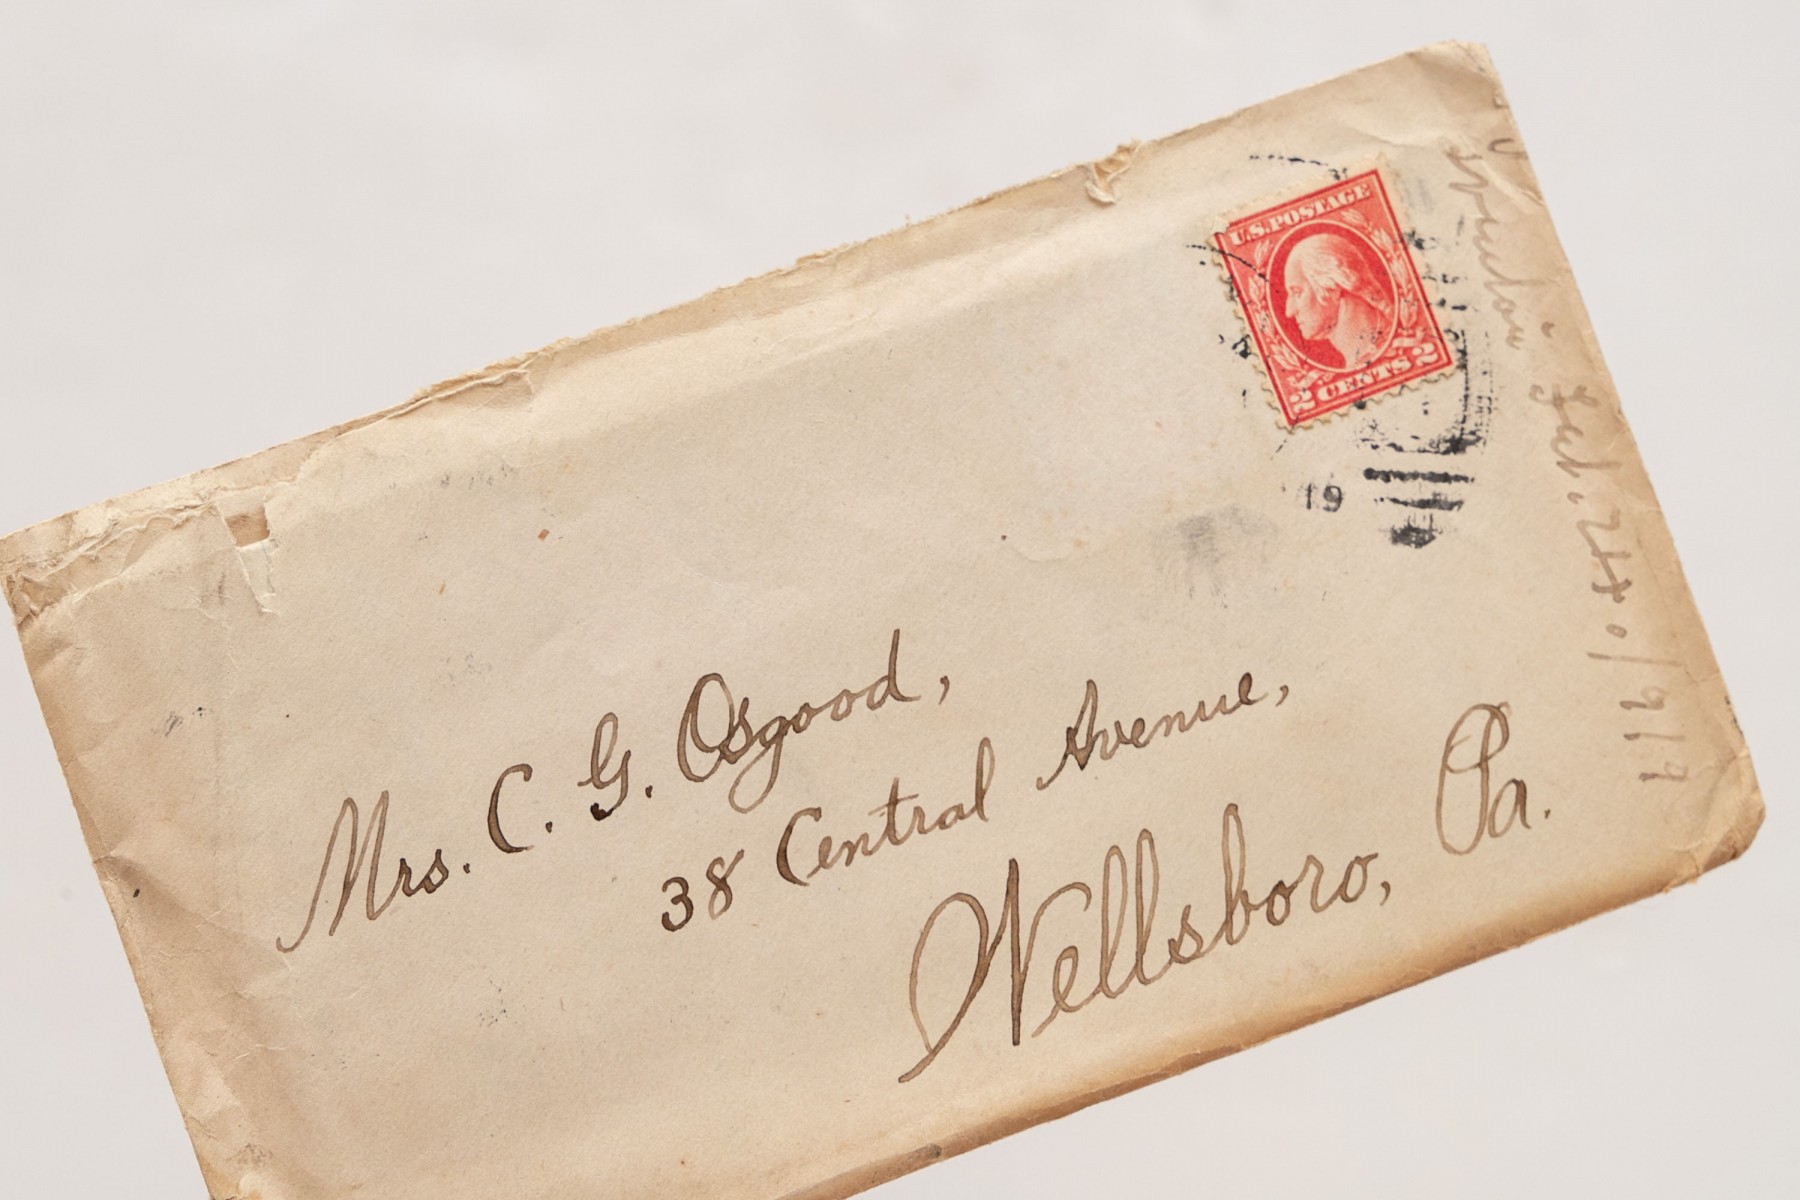 U.S. POSTAGE
2 CENTS 2
19
Mrs. C. G. Osgood,
38 Central Avenue,
Wellsboro, Pa.
Feb. 24 1919